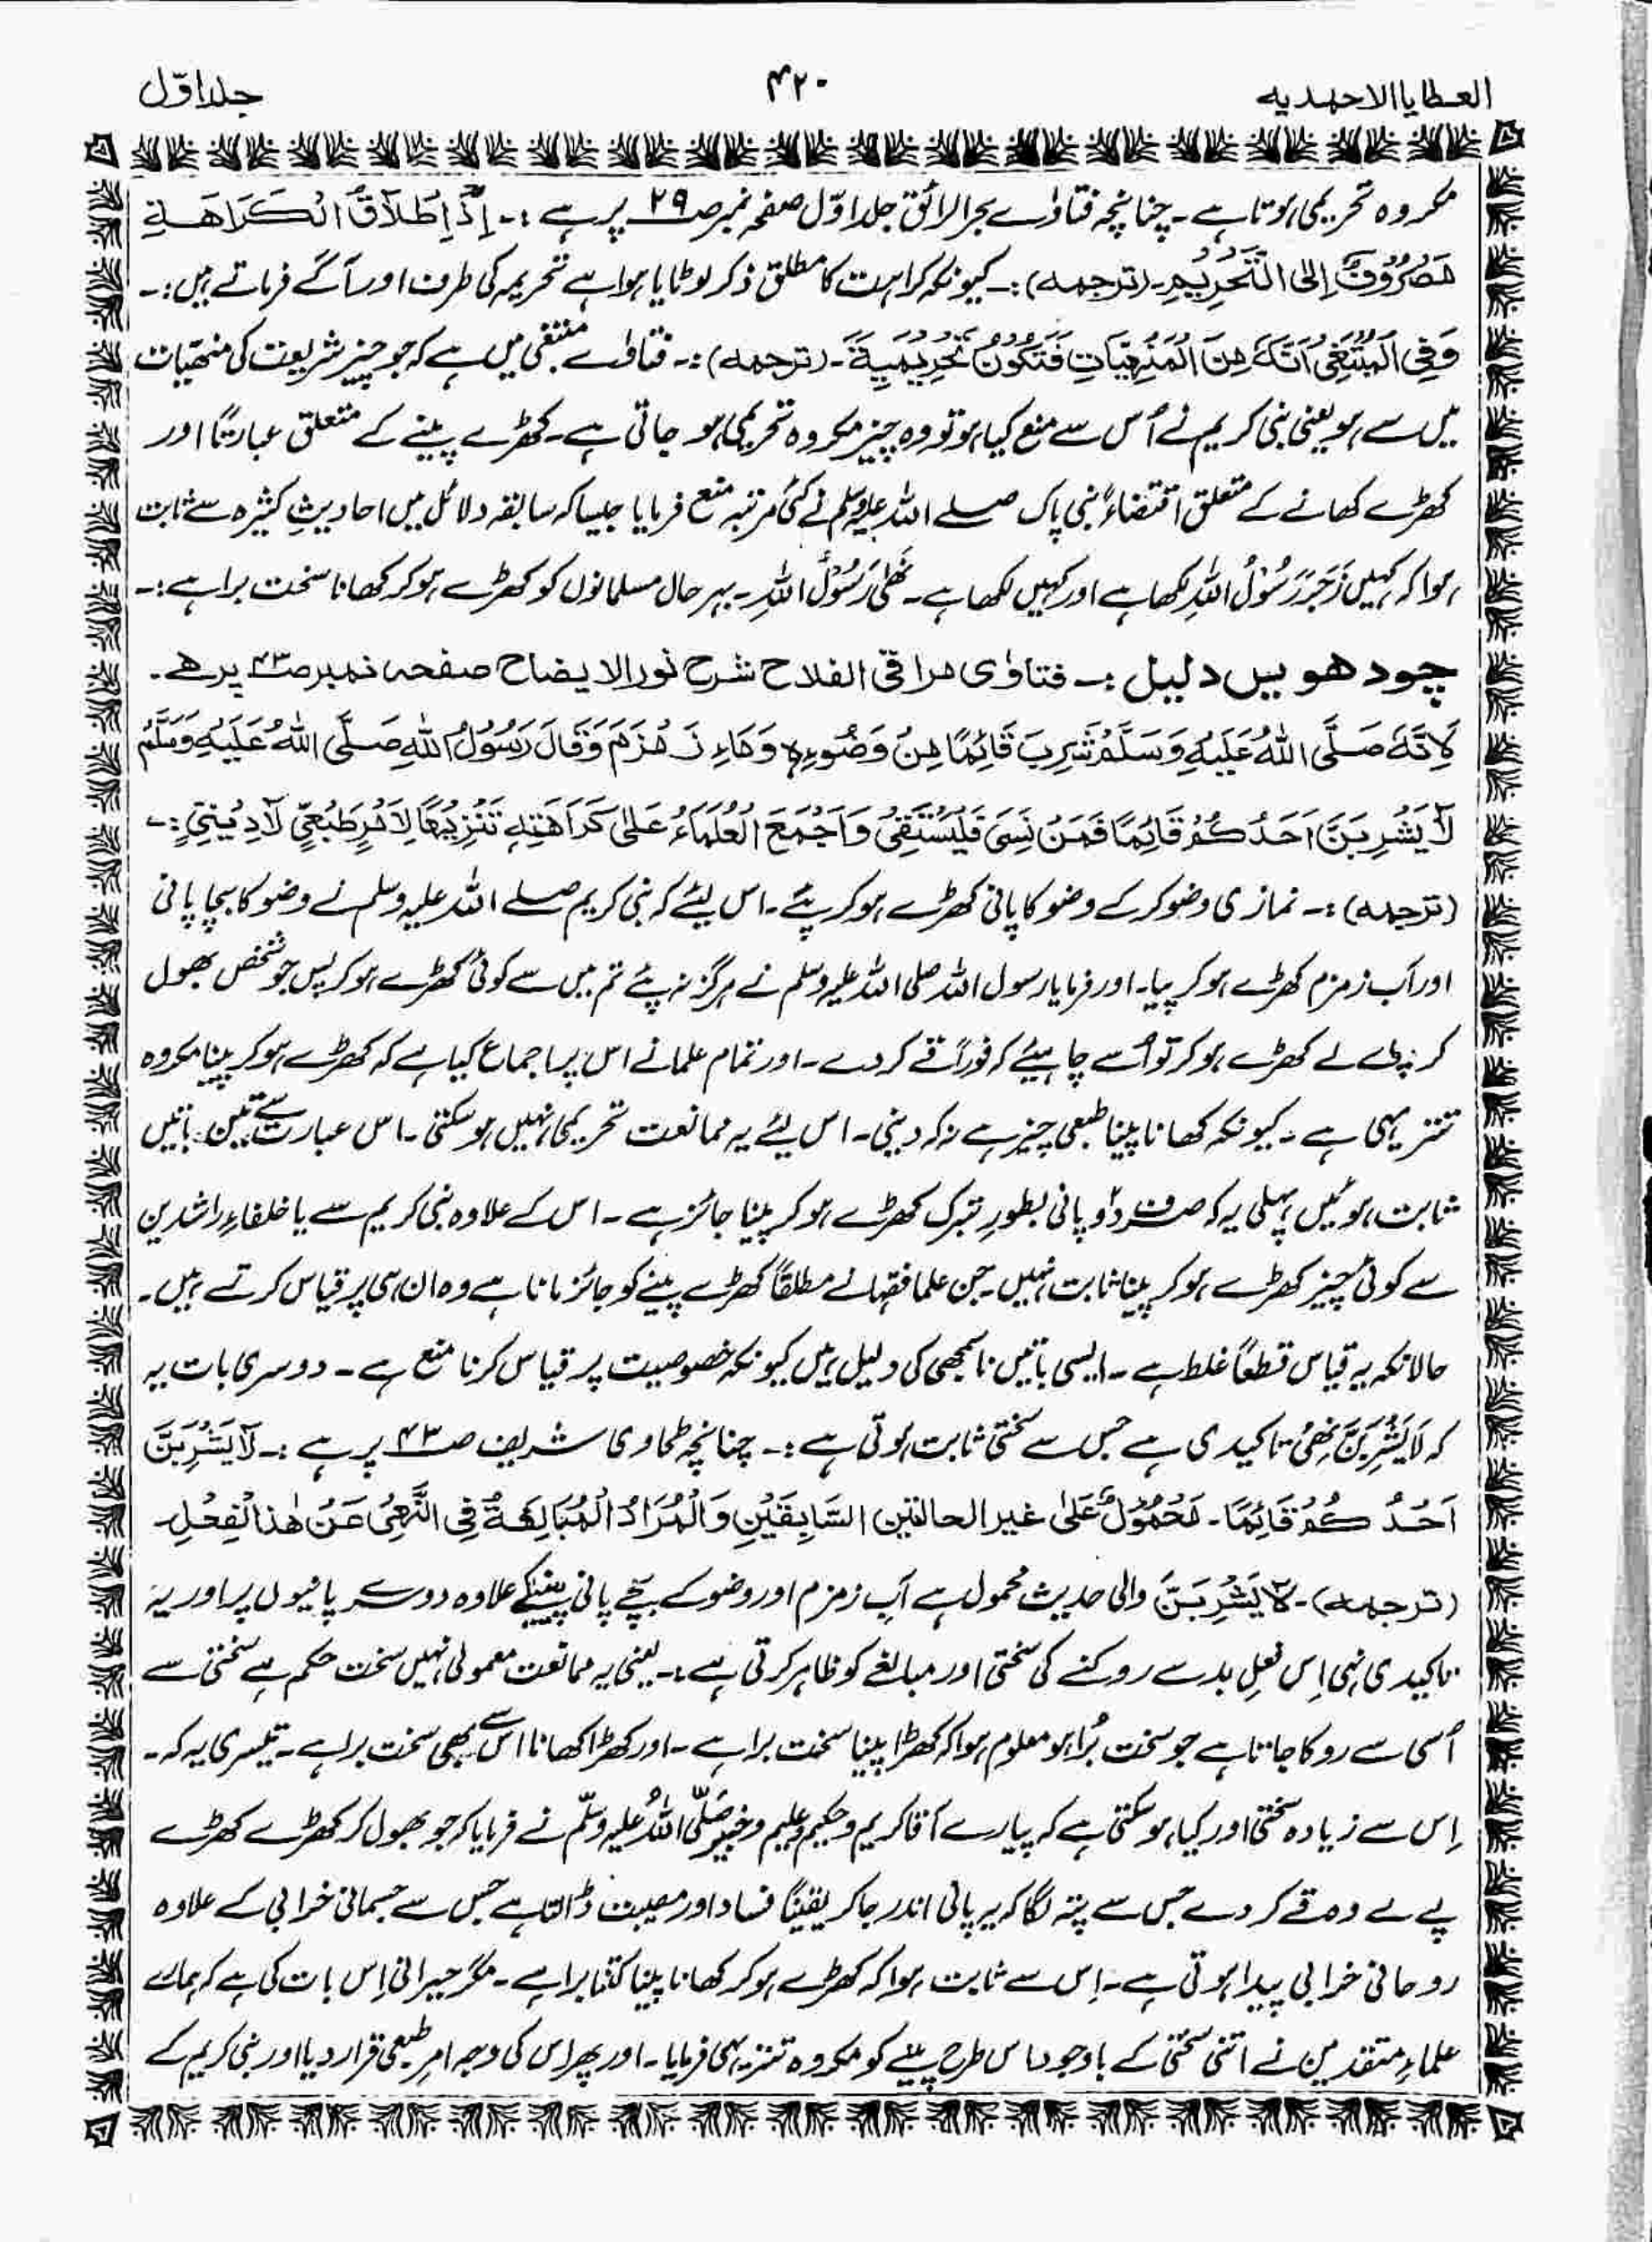 العطایا الاحمدیه
۴۲۰
جلد اوّل
مکروہ تحریمی ہوتا ہے۔ چنانچہ فتاوٰے بحر الرائق جلد اوّل صفحہ نمبر صـ ۲۹ پر ہے :۔ اِذْ اِطْلَاقُ الْکَرَاهَةِ
مَصْرُوْفٌ اِلَی التَّحْرِیْمِ۔ (ترجمہ) :۔ کیونکہ کراہت کا مطلق ذکر لوٹایا ہوا ہے تحریمہ کی طرف اور آگے فرماتے ہیں :۔
وَفِی الْمُبْتَغِیْ اَنَّهٗ مِنَ الْمَنْهِیَّاتِ فَتَکُوْنُ تَحْرِیْمِیَّةً۔ (ترجمہ) :۔ فتاوٰے منتقی میں ہے کہ جو چیز شریعت کی منھیّات
میں سے ہو یعنی نبی کریم نے اُس سے منع کیا ہو تو وہ چیز مکروہ تحریمی ہو جاتی ہے۔ کھڑے پینے کے متعلق عبارتاً اور
کھڑے کھانے کے متعلق اقتضاءً نبی پاک صلے اللہ علیہ وسلم نے کئی مرتبہ منع فرمایا جیسا کہ سابقہ دلائل میں احادیثِ کثیرہ سے ثابت
ہوا کہ کہیں زَجَرَ رَسُوْلُ اللہِ لکھا ہے اور کہیں لکھا ہے۔ نَھٰی رَسُوْلُ اللہِ۔ بہر حال مسلمانوں کو کھڑے ہو کر کھانا سخت برا ہے :۔
چودھویں دلیل :۔ فتاوٰی مراقی الفلاح شرح نور الایضاح صفحہ نمبر صـ ۴۳ پر ہے۔
لِاَنَّهٗ صَلَّی اللہُ عَلَیْهِ وَسَلَّمَ شَرِبَ قَائِمًا مِنْ وَضُوْءِهٖ وَمَاءِ زَمْزَمَ وَقَالَ رَسُوْلُ اللہِ صَلَّی اللہُ عَلَیْهِ وَسَلَّمَ
لَا یَشْرِبَنَّ اَحَدُکُمْ قَائِمًا فَمَنْ نَسِیَ فَلْیَسْتَقِیْ وَاَجْمَعَ الْعُلَمَاءُ عَلٰی کَرَاهَتِهٖ تَنْزِیْهًا لِاَمْرٍ طَبْعِیٍّ لَا دِیْنِیٍّ :۔
(ترجمہ) :۔ نمازی وضو کر کے وضو کا پانی کھڑے ہو کر پئے۔ اس لیئے کہ نبی کریم صلے اللہ علیہ وسلم نے وضو کا بچا پانی
اور آب زمزم کھڑے ہو کر پیا۔ اور فرمایا رسول اللہ صلی اللہ علیہ وسلم نے ہرگز نہ پئے تم میں سے کوئی کھڑے ہو کر پس جو شخص بھول
کر پی لے کھڑے ہو کر تو اُسے چاہیئے کہ فوراً قے کر دے۔ اور تمام علما نے اس پر اجماع کیا ہے کہ کھڑے ہو کر پینا مکروہ
تنزیہی ہے۔ کیونکہ کھانا پینا طبعی چیز ہے نہ کہ دینی۔ اس لیئے یہ ممانعت تحریمی نہیں ہو سکتی۔ اس عبارت سے تین باتیں
ثابت ہوئیں پہلی یہ کہ صرف دوؔ پانی بطورِ تبرک کھڑے ہو کر پینا جائز ہے۔ اس کے علاوہ نبی کریم سے یا خلفاءِ راشدین
سے کوئی چیز کھڑے ہو کر پینا ثابت نہیں۔ جن علما فقہا نے مطلقاً کھڑے پینے کو جائز مانا ہے وہ ان ہی پر قیاس کرتے ہیں۔
حالانکہ یہ قیاس قطعاً غلط ہے۔ ایسی باتیں نا سمجھی کی دلیل ہیں کیونکہ خصوصیت پر قیاس کرنا منع ہے۔ دوسری بات یہ
کہ لَا یَشْرِبَنَّ نَھْیِٔ تاکیدی ہے جس سے سختی ثابت ہوتی ہے :۔ چنانچہ طحاوی شریف صـ ۴۳ پر ہے :۔ لَا یَشْرِبَنَّ
اَحَدُ کُمْ قَائِمًا۔ مَحْمُوْلٌ عَلٰی غیر الحالتین السَّابِقَیْنِ وَالْمُرَادُ الْمُبَالِغَةُ فِی النَّهْیِ عَنْ هٰذا الْفِعْلِ۔
(ترجمہ)۔ لَا یَشْرِبَنَّ والی حدیث محمول ہے آبِ زمزم اور وضو کے بچے پانی پینے کے علاوہ دوسرے پانیوں پر اور یہ
تاکیدی نہی اِس فعلِ بد سے روکنے کی سختی اور مبالغے کو ظاہر کرتی ہے :۔ یعنی یہ ممانعت معمولی نہیں سخت حکم ہے سختی سے
اُسی سے روکا جاتا ہے جو سخت بُرا ہو معلوم ہوا کہ کھڑا پینا سخت برا ہے۔ اور کھڑا کھانا اس سے بھی سخت برا ہے۔ تیسری یہ کہ۔
اِس سے زیادہ سختی اور کیا ہو سکتی ہے کہ پیارے آقا کریم و حکیم و علیم و خبیر صَلَّی اللہُ علیہ وسلّم نے فرمایا کہ جو بھول کر کھڑے کھڑے
پی لے وہ قے کر دے جس سے پتہ لگا کہ یہ پانی اندر جا کر یقیناً فساد اور مصیبت ڈالتا ہے جس سے جسمانی خرابی کے علاوہ
روحانی خرابی پیدا ہوتی ہے۔ اِس سے ثابت ہوا کہ کھڑے ہو کر کھانا پینا کتنا برا ہے۔ مگر حیرانی اِس بات کی ہے کہ ہمارے
علماءِ متقدمین نے اتنی سختی کے باوجود اس طرح پینے کو مکروہ تنزیہی فرمایا۔ اور پھر اس کی وجہ امرِ طبعی قرار دیا اور نبی کریم کے